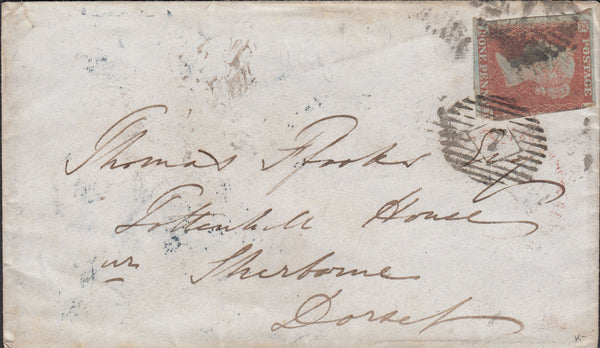 POSTAGE
ONE PEN
Thomas Ffooks Esq
Tottenhill House
nr Sherborne
Dorset
K-